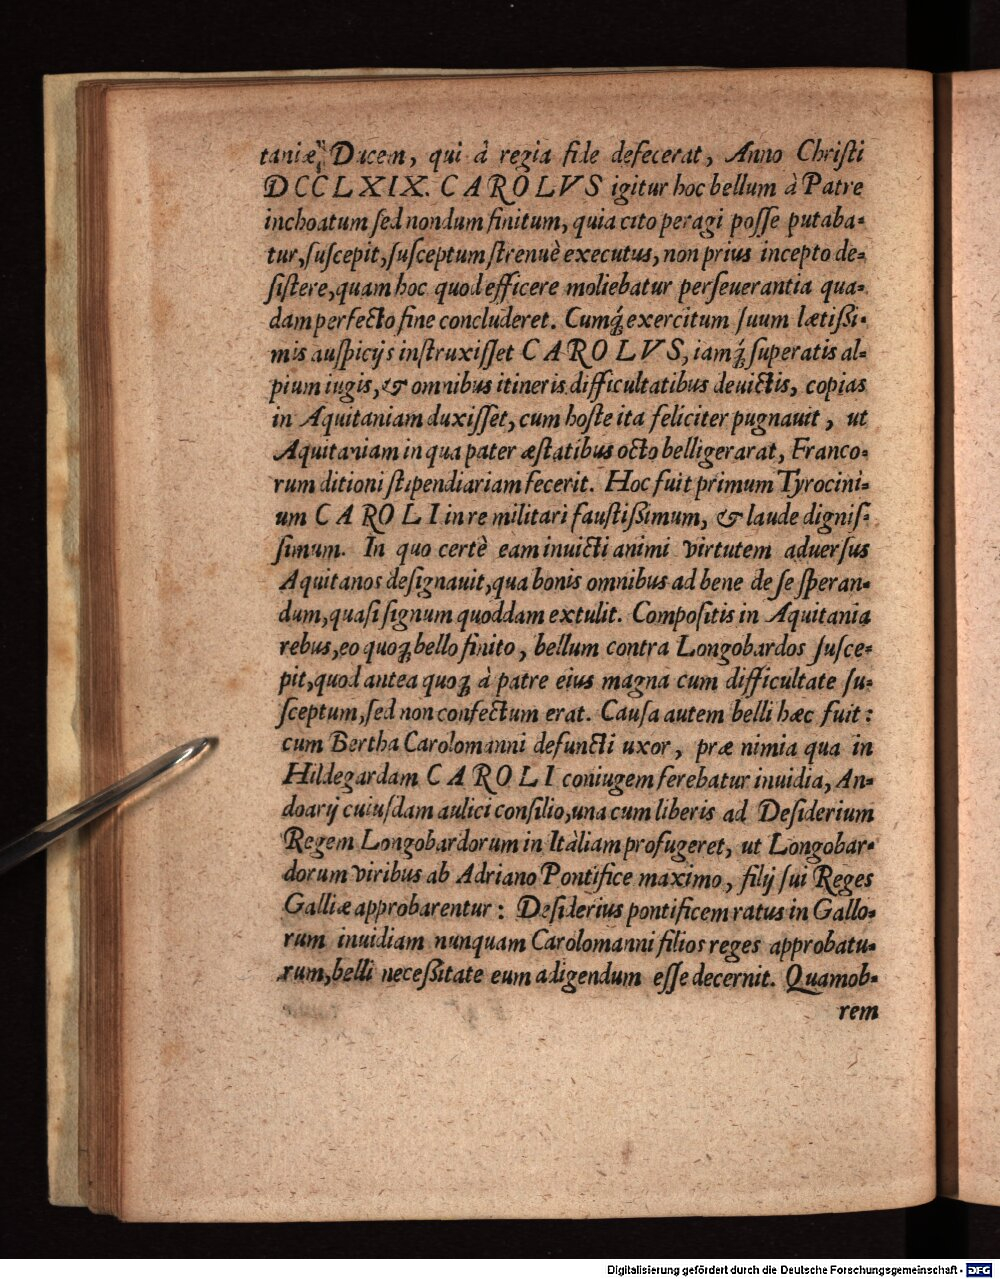 taniæ Ducem, qui à regia fide defecerat, Anno Chriſti
DCCLXIX. CAROLVS igitur hoc bellum à Patre
inchoatum ſed nondum finitum, quia cito peragi poſſe putaba-
tur, ſuſcepit, ſuſceptum ſtrenuè executus, non prius incepto de-
ſiſtere, quam hoc quod efficere moliebatur perſeuerantia qua-
dam perfecto fine concluderet. Cumq́; exercitum ſuum lætißi-
mis auſpicijs inſtruxiſſet CAROLVS, iamq́; ſuperatis al-
pium iugis, & omnibus itineris difficultatibus deuictis, copias
in Aquitaniam duxiſſet, cum hoſte ita feliciter pugnauit, ut
Aquitaniam in qua pater æſtatibus octo belligerarat, Franco-
rum ditioni ſtipendiariam fecerit. Hoc fuit primum Tyrocini-
um CAROLI in re militari fauſtißimum, & laude digniſ-
ſimum. In quo certè eam inuicti animi virtutem aduerſus
Aquitanos deſignauit, qua bonis omnibus ad bene de ſe ſperan-
dum, quaſi ſignum quoddam extulit. Compoſitis in Aquitania
rebus, eo quoq; bello finito, bellum contra Longobardos ſuſce-
pit, quod antea quoq; à patre eius magna cum difficultate ſu-
ſceptum, ſed non confectum erat. Cauſa autem belli hæc fuit:
cum Bertha Carolomanni defuncti uxor, præ nimia qua in
Hildegardam CAROLI coniugem ferebatur inuidia, An-
doarij cuiuſdam aulici conſilio, una cum liberis ad Deſiderium
Regem Longobardorum in Itàliam profugeret, ut Longobar-
dorum viribus ab Adriano Pontifice maximo, filij ſui Reges
Galliæ approbarentur: Deſiderius pontificem ratus in Gallo-
rum inuidiam nunquam Carolomanni filios reges approbatu-
rum, belli neceßitate eum adigendum eſſe decernit. Quamob-
rem
Digitalisierung gefördert durch die Deutsche Forschungsgemeinschaft - DFG